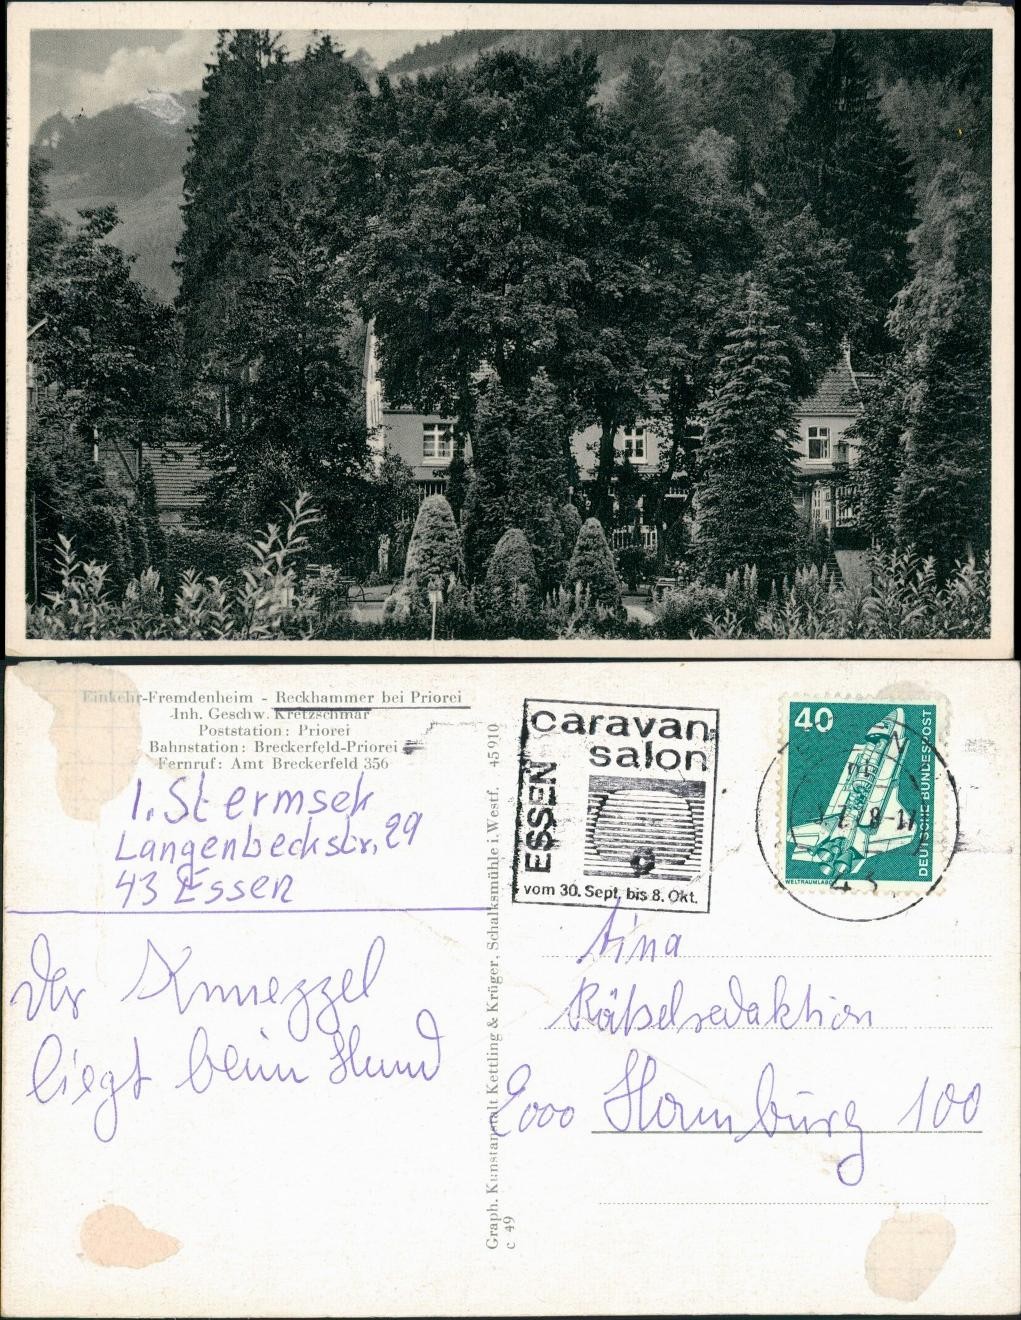 Einkehr-Fremdenheim - Reckhammer bei Priorei
Inh. Geschw. Kretzschmar
Poststation: Priorei
Bahnstation: Breckerfeld-Priorei
Fernruf: Amt Breckerfeld 356
I. Stermsek
Langenbeckstr. 29
43 Essen
der Knuezzel
liegt beim Hund
Graph. Kunstanstalt Kettling & Krüger, Schalksmühle i. Westf. 45910
c 49
caravan
salon
ESSEN
vom 30. Sept. bis 8. Okt.
40
DEUTSCHE BUNDESPOST
WELTRAUMLABOR
43
Tina
Rätselredaktion
2000 Hamburg 100